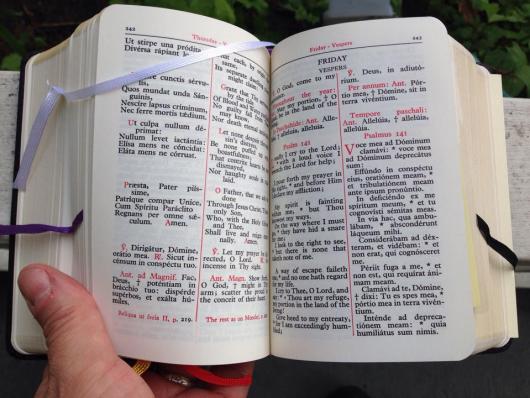 242
Thursday - V
Ut stirpe una pródita
Divérsa rápiant le
cuncti sérvu-
Quos mundat unda Sán-
guinis,
Nescíre lapsus críminum,
Nec ferre mortis tædium.
Ut culpa nullum dé-
primat:
Nullum levet iactántia;
Elísa mens ne cóncidat;
Eláta mens ne córruat.
Præsta, Pater piís-
sime,
Patríque compar Unice,
Cum Spíritu Paráclito
Regnans per omne sǽ-
culum. Amen.
℣. Dirigátur, Dómine,
orátio mea. ℟. Sicut in-
cénsum in conspéctu tuo.
Ant. ad Magnif. Fac,
Deus, ‡ poténtiam in
bráchio tuo: dispérde
supérbos, et exálta hú-
miles.
Reliqua ut feria II, p. 219.
each, by
Its separate
might
Grant that Thy
by the
Of Blood and W
No darkly fal
may know,
Nor death eternal
Let none despon
sin's di
Be none puffed up
boastfulness;
That contrite hearts be
dismayed,
Nor haughty souls in
laid.
O Father, that we ask be
done
Through Jesus Christ, Thine
only Son,
Who, with the Holy Ghost
and Thee,
Shall live and reign eter-
nally. Amen.
℣. Let my prayer be di-
rected, O Lord. ℟. As
incense in Thy sight.
Ant. Magn. Show forth,
O God, ‡ might in Thy
arm; scatter the proud in
the conceit of their heart.
The rest as on Monday, p.
Friday - Vespers
243
FRIDAY
VESPERS
O God, come to my
throughout the year:
May my portion, ‡ O
be in the land of the
Paschaltide: Ant. Al-
alleluia, alleluia.
Psalm 141
With my voice I cry to the Lord; *
with a loud voice I
beseech the Lord.
I pour forth my prayer in
His sight, * and before Him
I declare my affliction;
My spirit is fainting
within me, * but Thou
my ways.
On the way where I must
* they have hid a snare
for me.
I look to the right to see,
but there is none that
taketh note of me.
A way of escape faileth
me, * and no one hath regard
for my life.
I cry to Thee, O Lord, and
say: * Thou art my refuge,
my portion in the land of the
living!
Give heed to my entreaty,
* for I am exceedingly hum-
bled;
℣. Deus, in adiutó-
rium.
Per annum: Ant. Pór-
tio mea, ‡ Dómine, sit in
terra vivéntium.
Tempore paschali:
Ant. Allelúia, ‡ allelúia,
allelúia.
Psalmus 141
Voce mea ad Dóminum
clamávi: * voce mea
ad Dóminum deprecátus
sum:
Effúndo in conspéctu
eius, oratiónem meam, * et
tribulatiónem meam
ante ipsum pronúntio.
In deficiéndo ex me
spíritum meum, * et tu
cognovísti sémitas meas.
In via hac, qua ambu-
lábam, * abscondérunt
láqueum mihi.
Considerábam ad déx-
teram, et vidébam: * et
non erat, qui cognósceret
me.
Périit fuga a me, * et
non est, qui requírat áni-
mam meam.
Clamávi ad te, Dómine,
† dixi: Tu es spes mea, *
pórtio mea in terra vivén-
tium.
Inténde ad depreca-
tiónem meam: * quia
humiliátus sum nimis.